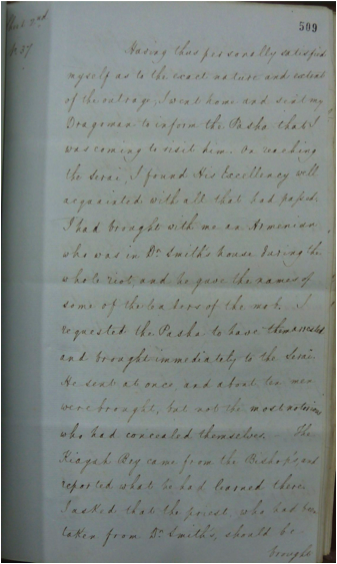 509
Having thus personally satisfied
myself as to the exact nature and extent
of the outrage, I went home and sent my
Dragoman to inform the Pasha that I
was coming to visit him. On reaching
the Serai, I found His Excellency well
acquainted with all that had passed.
I had brought with me an Armenian,
who was in Dr Smith's house during the
whole riot, and he gave the names of
some of the leaders of the mob. I
requested the Pasha to have them arrested
and brought immediately to the Serai.
He sent at once, and about ten men
were brought, but not the most notorious
who had concealed themselves. The
Kiayah Bey came from the Bishop's, and
reported what he had learned there.
I asked that the priest, who had been
taken from Dr Smith's, should be
brought